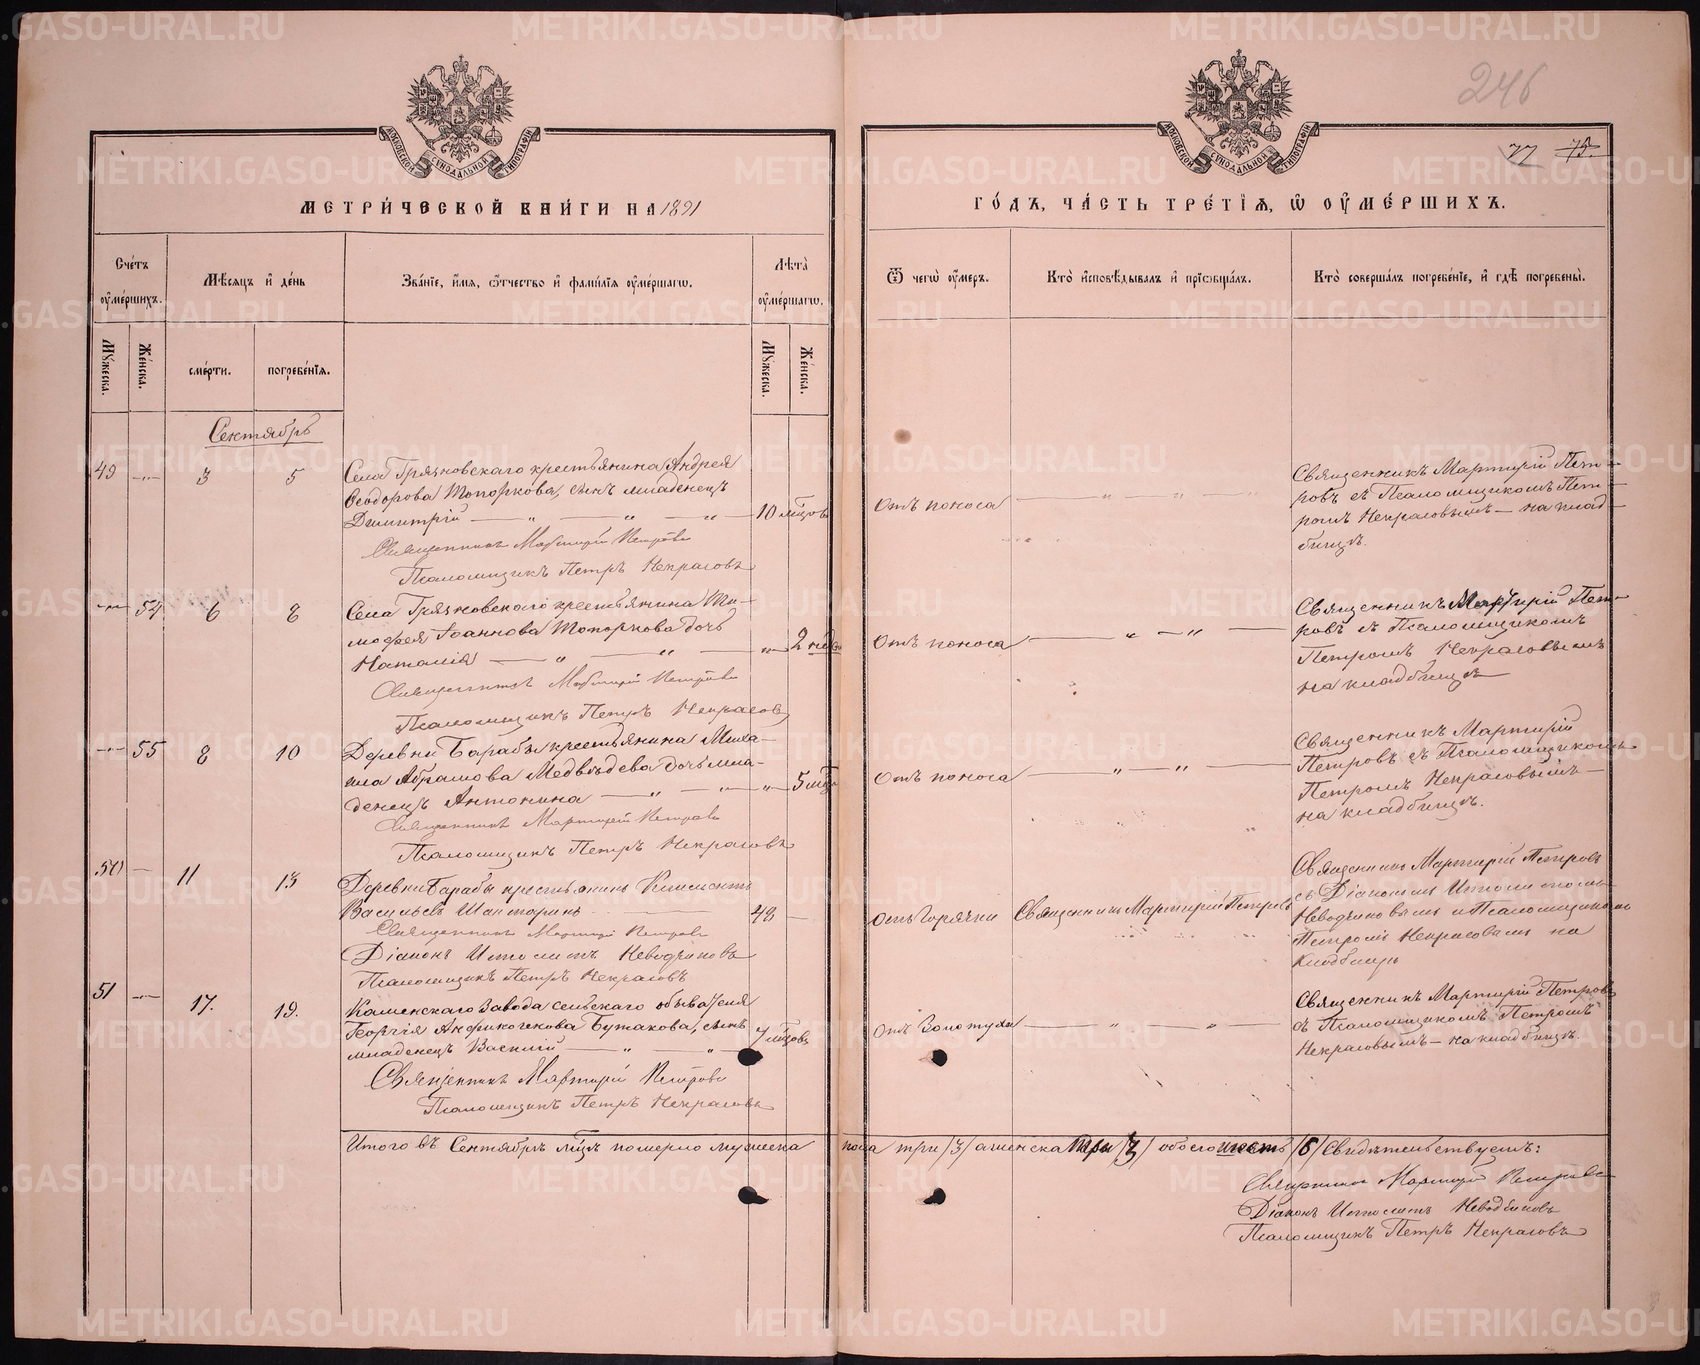 246
77 75.
МОСКОВСКОЙ СѴНОДАЛЬНОЙ ТИПОГРАФІИ
МОСКОВСКОЙ СѴНОДАЛЬНОЙ ТИПОГРАФІИ
МЕТРИ́ЧЕСКОЙ КНИ́ГИ НА 1891
ГО́ДЪ, ЧА́СТЬ ТРЕ́ТІѦ, Ѡ ОУ҆МЕ́РШИХЪ.
Сче́тъ оу҆ме́ршихъ.
Мꙋ́жеска.
Же́нска.
Мѣ́сѧцъ и҆ де́нь
сме́рти.
погребе́нїѧ.
Зва́нїе, и҆́мѧ, ѻ҆́тчество и҆ фами́лїѧ оу҆ме́ршагѡ.
Лѣ́та оу҆ме́ршагѡ.
Мꙋ́жеска.
Же́нска.
Ѿ чегѡ̀ оу҆́меръ.
Кто̀ и҆сповѣ́дывалъ и҆ прїѡбща́лъ.
Кто̀ соверша́лъ погребе́нїе, и҆ гдѣ̀ погребены̀.
Сентябрь
49 —„— 3 5
Села Грязновскаго крестьянина Андрея
Ѳеодорова Топоркова, сынъ младенецъ
Димитрій — „ — „ — „ — 10 мѣсцовъ
Священникъ Мартирій Петровъ
Псаломщикъ Петръ Некрасовъ
Отъ поноса — „ — „ —
Священникъ Мартирій Пет-
ровъ съ Псаломщикомъ Пет-
ромъ Некрасовымъ — на клад-
бищѣ.
—„— 54 6 8
Села Грязновскаго крестьянина Ти-
мофея Іоаннова Топоркова дочь
Наталія — „ — „ — „ 2 нед
Священникъ Мартирій Петровъ
Псаломщикъ Петръ Некрасовъ
Отъ поноса — „ — „ —
Священникъ Мартирій Пет-
ровъ съ Псаломщикомъ
Петромъ Некрасовымъ
на кладбищѣ
—„— 55 8 10
Деревни Барабы крестьянина Миха-
ила Абрамова Медвѣдева дочь мла-
денецъ Антонина — „ — „ — „ 5 мѣс
Священникъ Мартирій Петровъ
Псаломщикъ Петръ Некрасовъ
Отъ поноса — „ — „ —
Священникъ Мартирій
Петровъ съ Псаломщикомъ
Петромъ Некрасовымъ —
на кладбищѣ.
50 — 11 13
Деревни Барабы крестьянинъ Климентъ
Васильевъ Шанторинъ 48 —
Священникъ Мартирій Петровъ
Діаконъ Ипполитъ Неводчиковъ
Псаломщикъ Петръ Некрасовъ
Отъ горячки Священникъ Мартирій Петровъ
Священникъ Мартирій Петровъ
съ Діакономъ Ипполитомъ
Неводчиковымъ и Псаломщикомъ
Петромъ Некрасовымъ на
Кладбищѣ
51 —„— 17. 19.
Каменскаго Завода сельскаго обывателя
Георгія Бутакова, сынъ
младенецъ Василій — „ — „ 7 мѣсцовъ
Священникъ Мартирій Петровъ
Псаломщикъ Петръ Некрасовъ
Отъ Золотухи — „ — „ —
Священникъ Мартирій Петровъ
съ Псаломщикомъ Петромъ
Некрасовымъ — на кладбищѣ.
Итого въ Сентябрѣ мѣсцѣ померло мужеска пола три /3/ а женска три /3/ обоего шесть /6/ Свидѣтельствуемъ:
Священникъ Мартирій Петровъ
Діаконъ Ипполитъ Неводчиковъ
Псаломщикъ Петръ Некрасовъ
METRIKI.GASO-URAL.RU